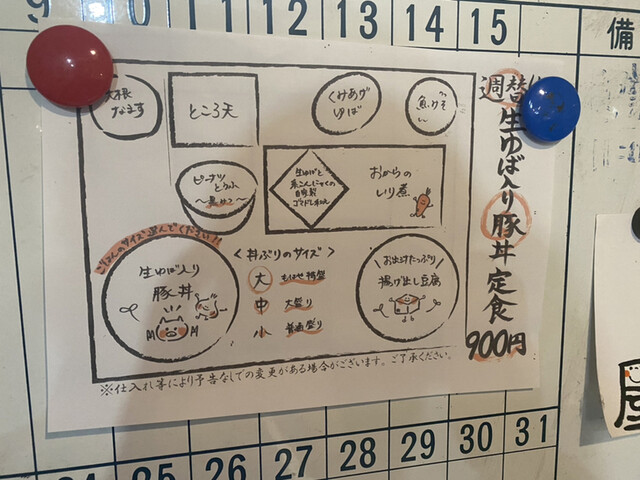 9 10 11 12 13 14 15
備
週替
生ゆば入り豚丼定食
900円
大根
なます
ところ天
くみあげ
ゆば
ピーナツ
とうふ
生ゆばと
糸こんにゃくの
自家製
おからの
炒り煮
ごはんのサイズ選んでください!!
生ゆば入り
豚丼
<丼ぶりのサイズ>
大 もはや特盛
中 大盛り
小 普通盛り
お出汁たっぷり
揚げ出し豆腐
※仕入れ等により予告なしでの変更がある場合がございます。ご了承ください。
24 25 26 27 28 29 30 31